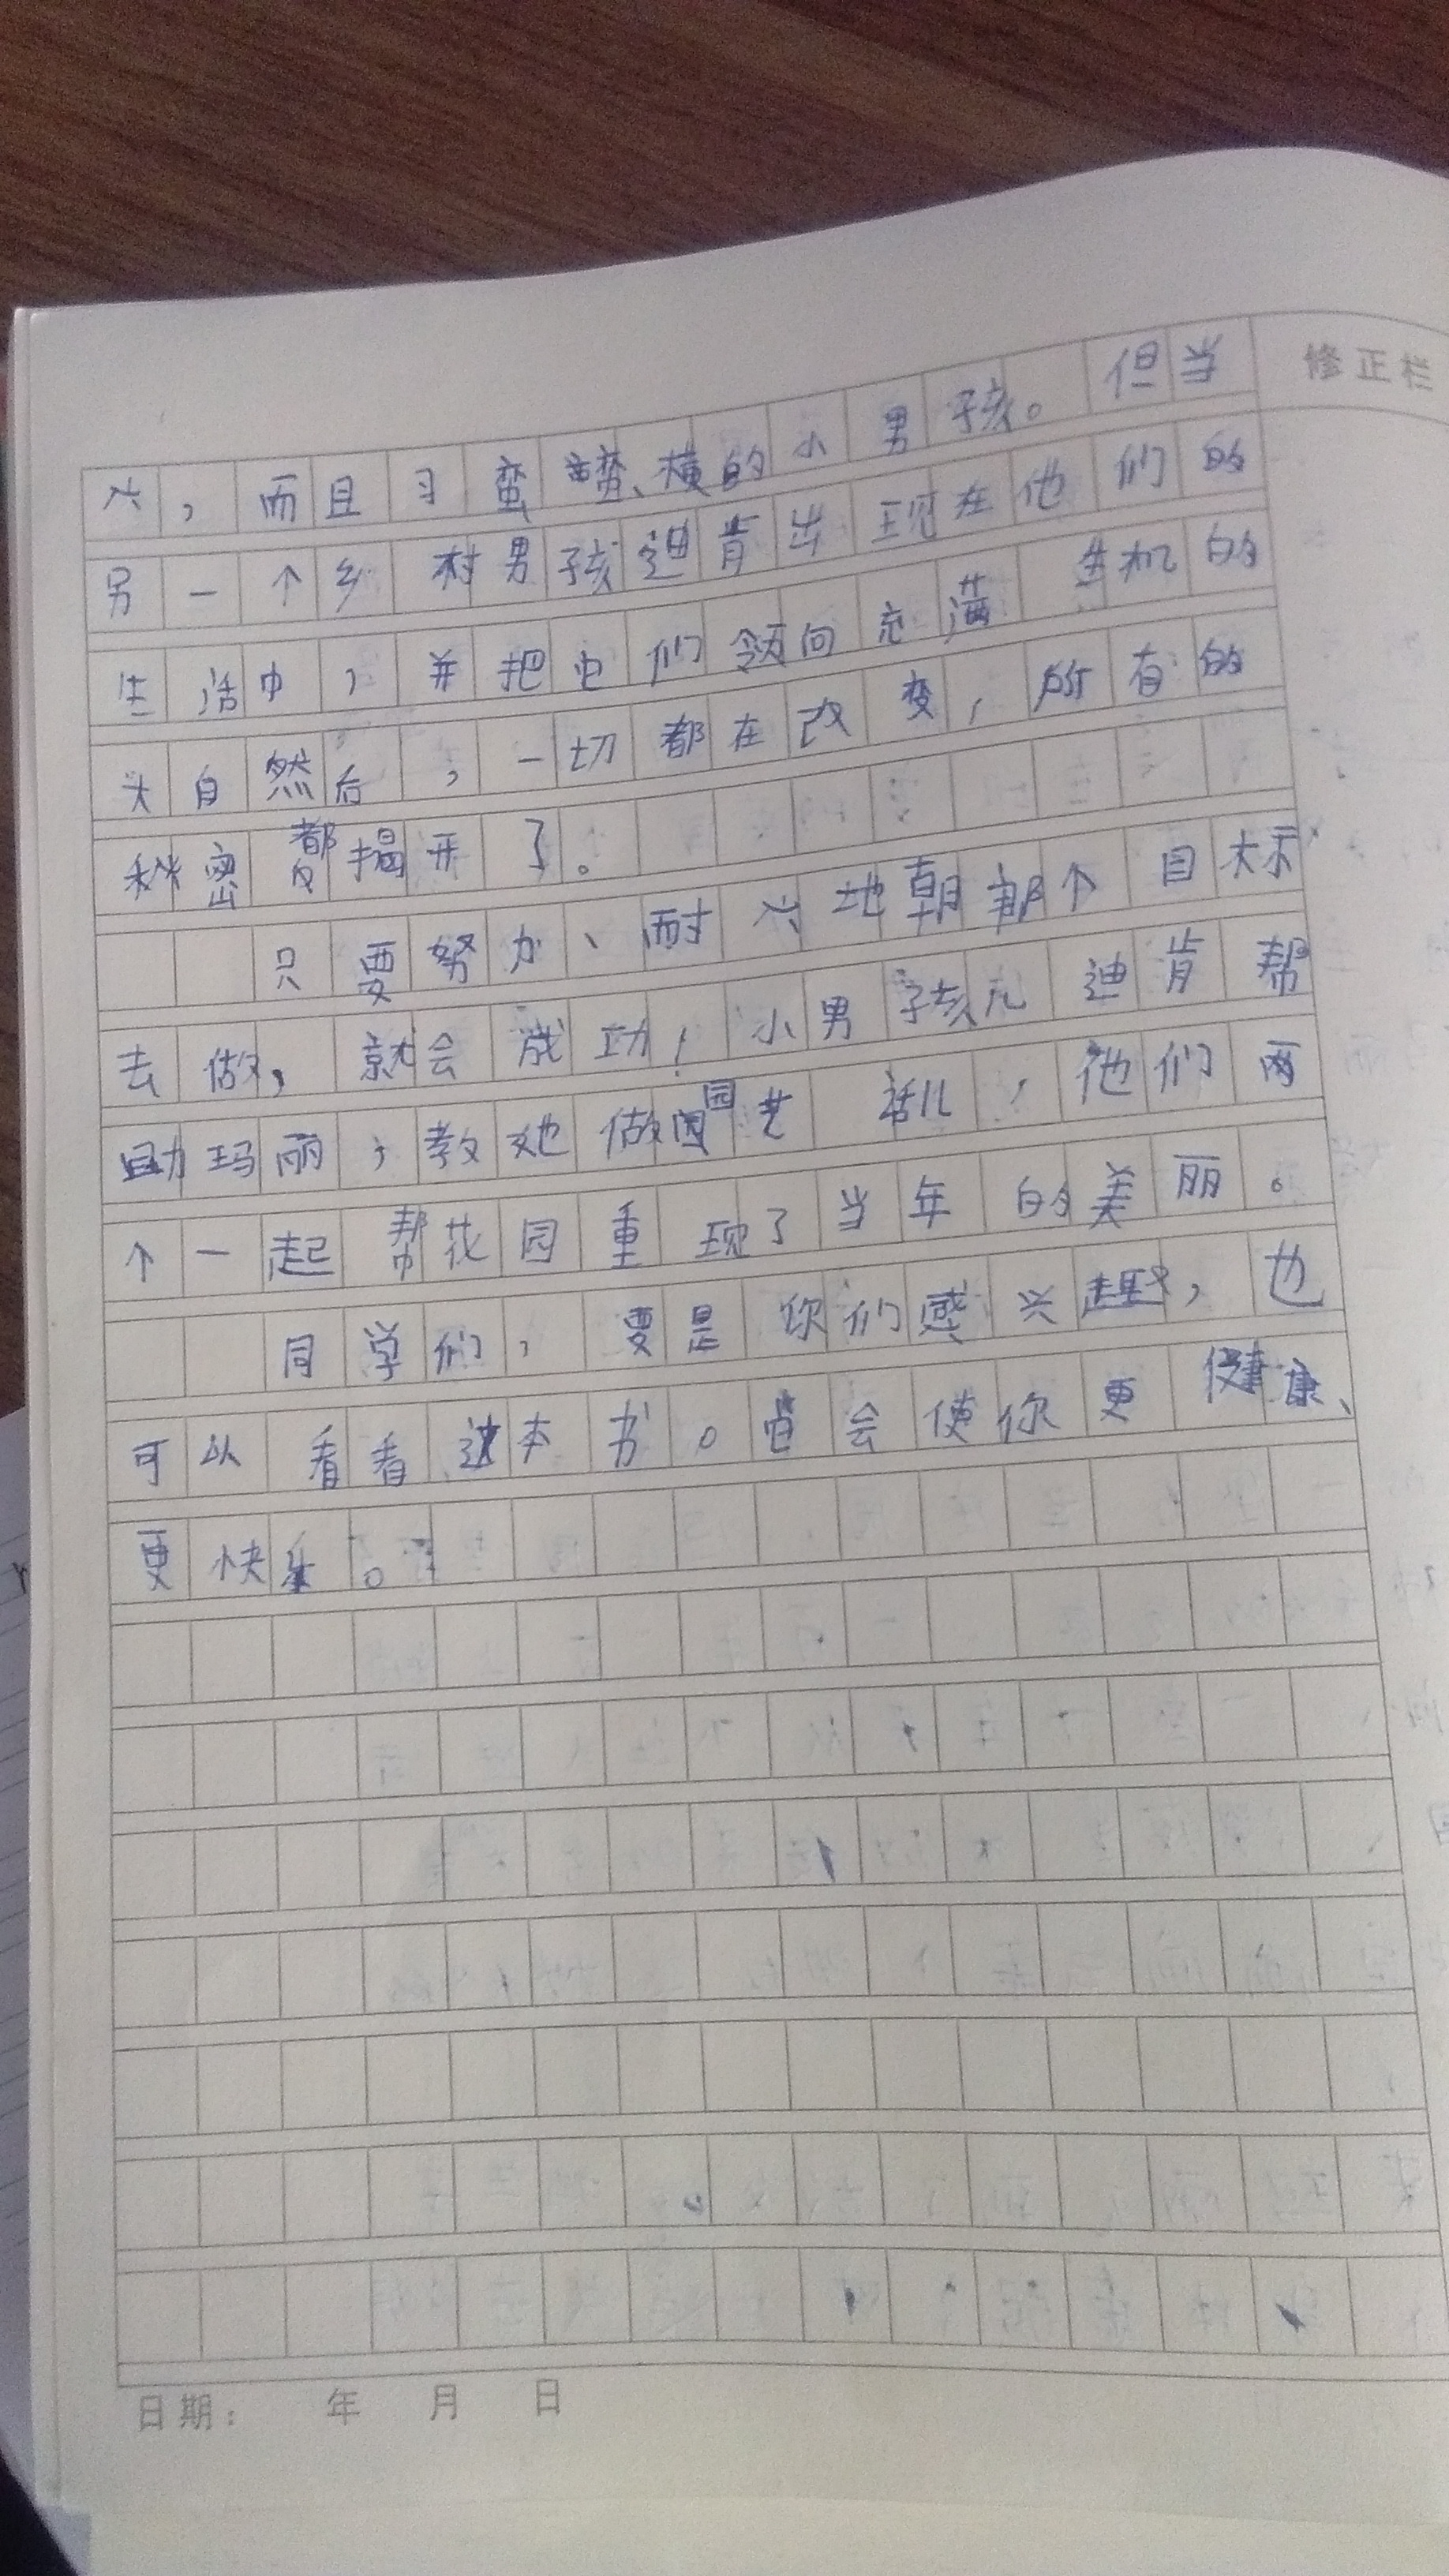 修正栏
心，而且习蛮、横的小男孩。但当
另一个乡村男孩迪肯出现在他们的
生活中，并把他们领向充满生机的
大自然后，一切都在改变，所有的
秘密都揭开了。
只要努力、耐心地朝那个目标
去做，就会成功！小男孩儿迪肯帮
助玛丽，教她做园艺活儿，他们两
个一起帮花园重现了当年的美丽。
同学们，要是你们感兴趣，也
可以看看这本书。会使你更健康、
更快乐。
日期： 年 月 日